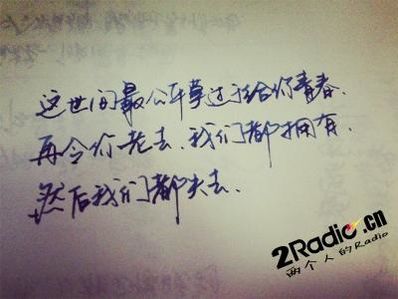 这世间最公平莫过于给你青春、
再令你老去、我们都拥有、
然后我们都失去、
2Radio.cn
两个人的Radio